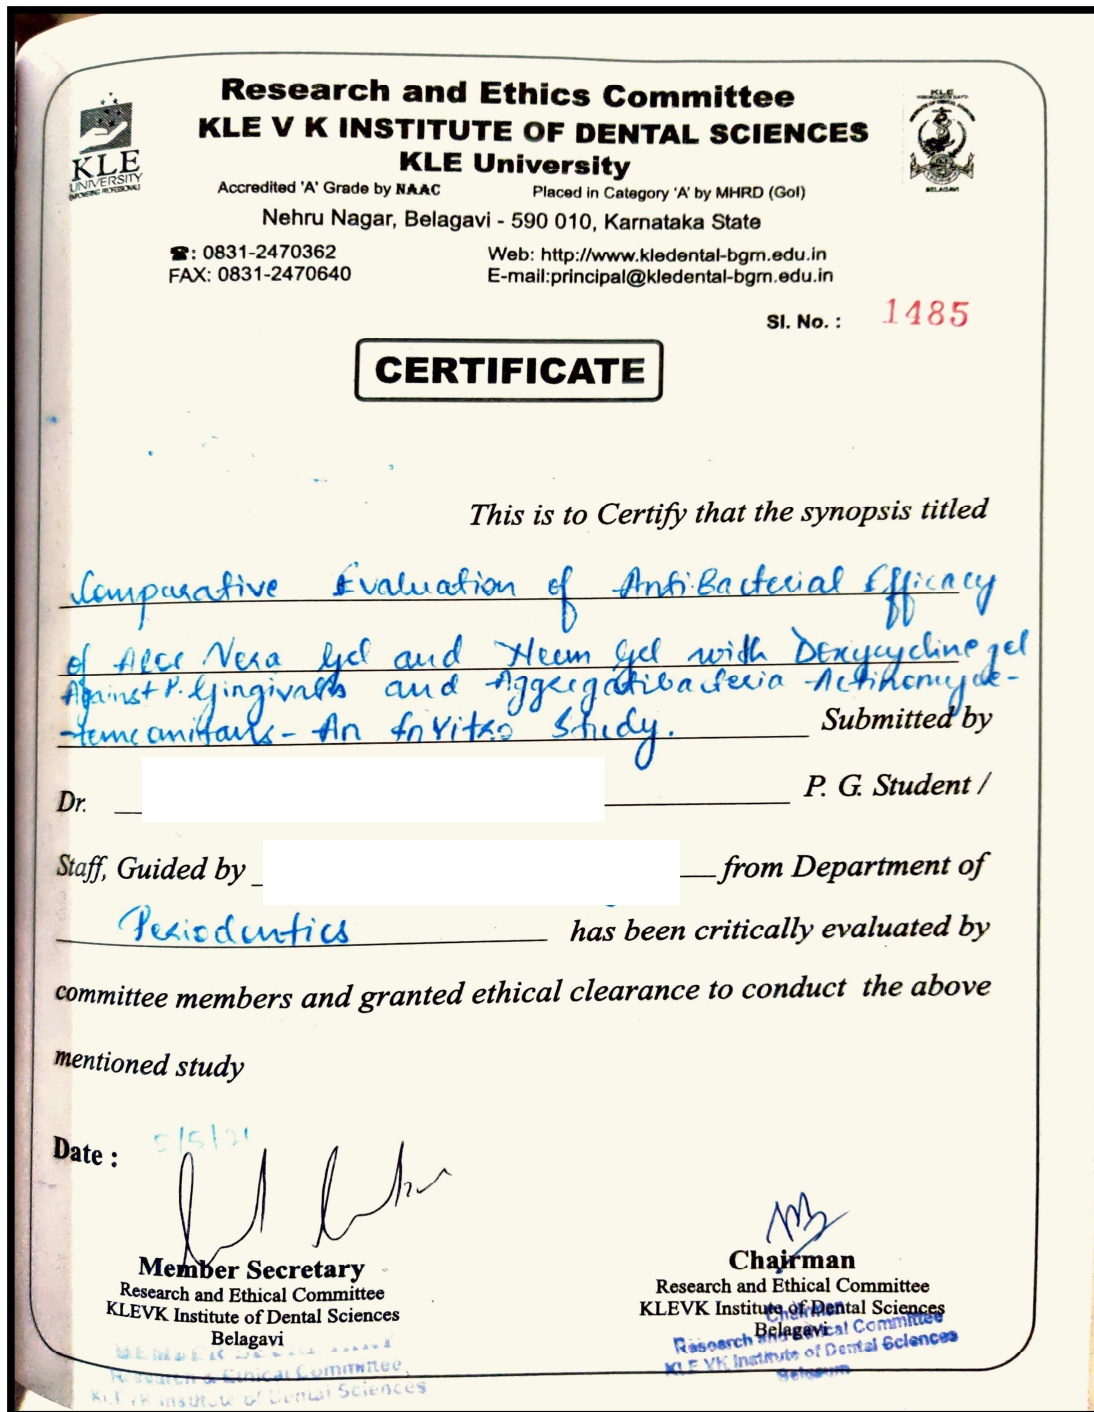 Research and Ethics Committee
KLE V K INSTITUTE OF DENTAL SCIENCES
KLE University
Accredited 'A' Grade by NAAC Placed in Category 'A' by MHRD (GoI)
Nehru Nagar, Belagavi - 590 010, Karnataka State
KLE
UNIVERSITY
EMPOWERING PROFESSIONALS
KLE
BELAGAVI
☎: 0831-2470362 Web: http://www.kledental-bgm.edu.in
FAX: 0831-2470640 E-mail:principal@kledental-bgm.edu.in
Sl. No. : 1485
CERTIFICATE
This is to Certify that the synopsis titled
Comparative Evaluation of AntiBacterial Efficacy
of Aloe Vera Gel and Neem Gel with Doxycycline gel
Against P. Gingivalis and Aggregatibacteria Actinomyce-
-temcomitans - An InVitro Study. Submitted by
Dr. P. G. Student /
Staff, Guided by from Department of
Periodontics has been critically evaluated by
committee members and granted ethical clearance to conduct the above
mentioned study
Date : 5/5/21
Member Secretary
Research and Ethical Committee
KLEVK Institute of Dental Sciences
Belagavi
Research & Ethical Committee,
KLE VK Institute of Dental Sciences
Chairman
Research and Ethical Committee
KLEVK Institute of Dental Sciences
Belagavi
Chairman
Research and Ethical Committee
KLE VK Institute of Dental Sciences
Belgaum